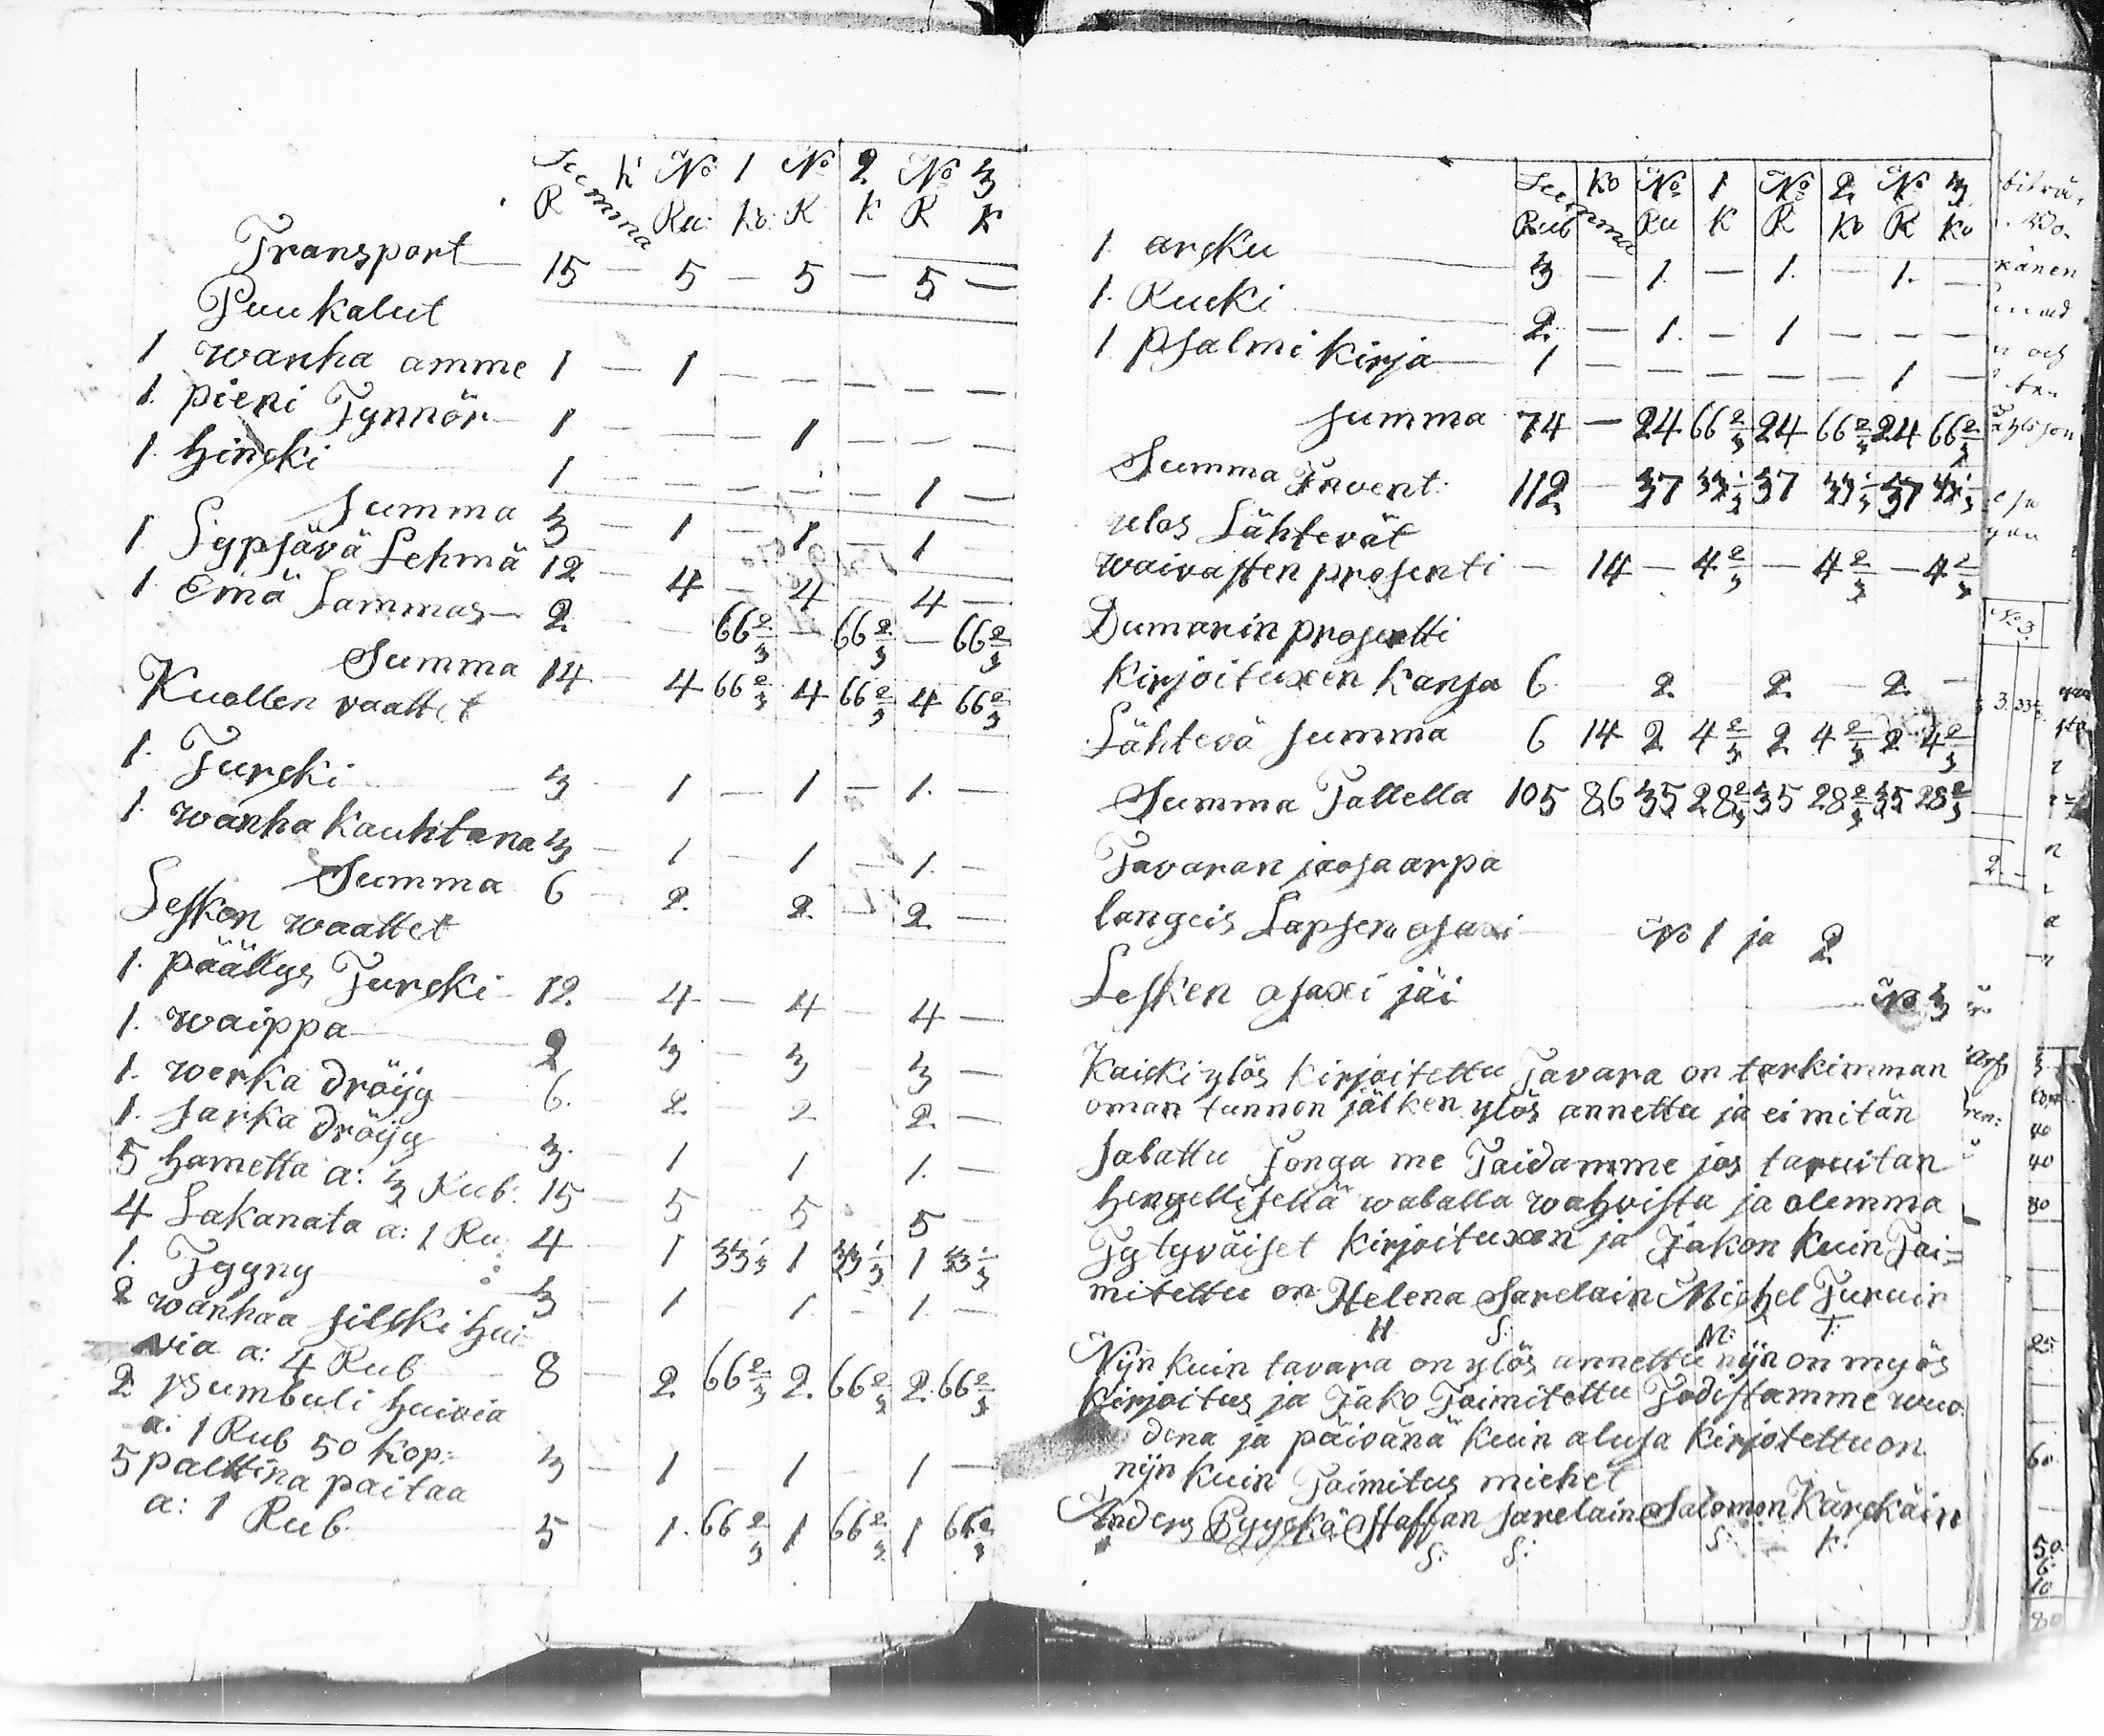 Summa K No 1 No 2 No 3
R Ru: Ko: R K R K
Transport 15 — 5 — 5 — 5 —
Puukalut
1 wanha amme 1 — 1 — — — — —
1. pieni Tynnör 1 — — — 1 — — —
1. hincki 1 — — — — — 1 —
Summa 3 — 1 — 1 — 1 —
1 Lypsävä Lehmä 12 — 4 — 4 — 4 —
1 Emä Lammas — 2 — — 66 2/3 — 66 2/3 — 66 2/3
Summa 14 — 4 66 2/3 4 66 2/3 4 66 2/3
Kuollen vaattet
1. Turcki 3 — 1 — 1 — 1. —
1. wanha kauhtana 3 — 1 — 1 — 1. —
Summa 6 — 2. 2. — 2. —
Leskon waattet
1. päällys Turcki 12. — 4 — 4 — 4 —
1. waippa 2 — 3 — 3 — 3 —
1. werka dröijy 6. 2 — 2 2 —
1. sarka dröijy 3. 1 1 1. —
5 hametta a: 3 Rub: 15 — 5 5 5 —
4 Lakanata a: 1 Ru: 4 — 1 33 1/3 1 33 1/3 1 33 1/3
1. Tyyny 3 — 1 1. — 1. —
2 wanhaa silcki hui
via a: 4 Rub 8 — 2. 66 2/3 2. 66 2/3 2. 66 2/3
2 pumbuli huivia
a: 1 Rub 50 kop: 3 — 1 — 1 — 1 —
5 palttina paitaa
a: 1 Rub 5 — 1. 66 2/3 1 66 2/3 1 66 2/3
Summa Ko No 1 No 2. No 3
Rub Ru K R Ko R Ko
1. arcku 3 — 1. — 1. — 1. —
1. Rucki 2. — 1. — 1 — — —
1 psalmi kirja 1 — — — — — 1 —
summa 74 — 24 66 2/3 24 66 2/3 24 66 2/3
Summa Invent: 112 — 37 33 1/3 37 33 1/3 37 33 1/3
ulos Lähtevät
waivasten prosenti — 14 — 4 2/3 — 4 2/3 — 4 2/3
Dumarin prosentti
kirjoituxen kansa 6 2. 2. — 2. —
Lähtevä summa 6 14 2 4 2/3 2 4 2/3 2 4 2/3
Summa Tallella 105 86 35 28 2/3 35 28 2/3 35 28 2/3
Tavaran jaosa arpa
langeis Lapsen osaxi No 1 ja 2
Lesken osaxi jäi No 3
Kaicki ylös kirjoitettu Tavara on tarkimman
oman tunnon jälken ylös annettu ja ei mitän
salattu Jonga me Taidamme jos tarvitan
hengellisellä walalla wahvista ja olemma
Tytyväiset kirjoituxen ja Jakon kuin Toi=
mitettu on Helena Sarelain Michel Turuin
H S: M: T:
Nijn kuin tavara on ylös annettu nijn on myös
kirjoitus ja Jako Toimitettu Todistamme wuo
dena ja päivänä kuin alusa kirjotettu on
nijn kuin Toimitus miehet
Anders Pyyckä Staffan Sarelain Salomon Kärckäin
S: S: S: K:
No 3.